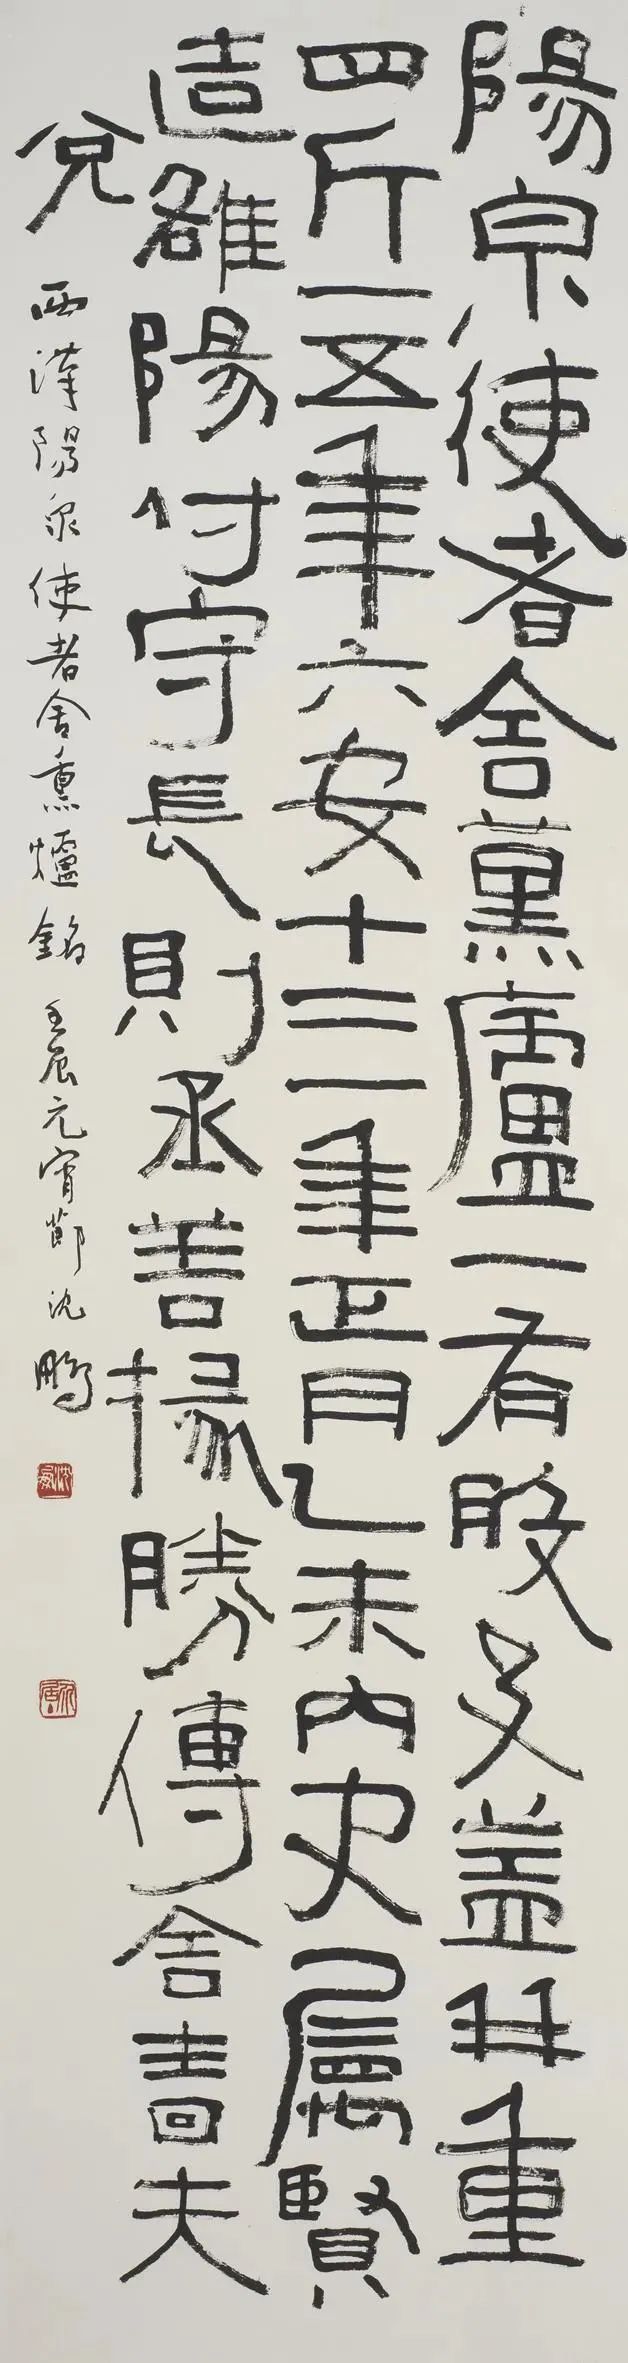 陽泉使者舍薰廬一有般及蓋并重
四斤一五年六安十三年正月乙未內史屬賢
造雒陽付守長則丞善掾勝傳舍嗇夫
兌
西漢陽泉使者舍熏爐銘 壬辰元宵節 沈鵬